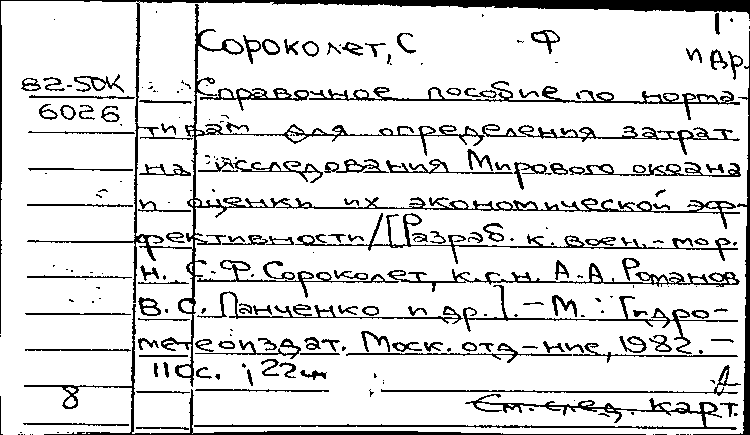 Сороколет, С Ф
и др.
82-50К
6026
Справочное пособие по норма
тивам для определения затрат
на исследования Мирового океана
и оценки их экономической эф-
фективности/[Разраб. к. воен.-мор.
н. С.Ф. Сороколет, к.г.н. А.А. Романов
В.С. Панченко и др.].-М.: Гидро-
метеоиздат. Моск. отд-ние, 1982.-
110с. ; 22см
8
См. след. карт.